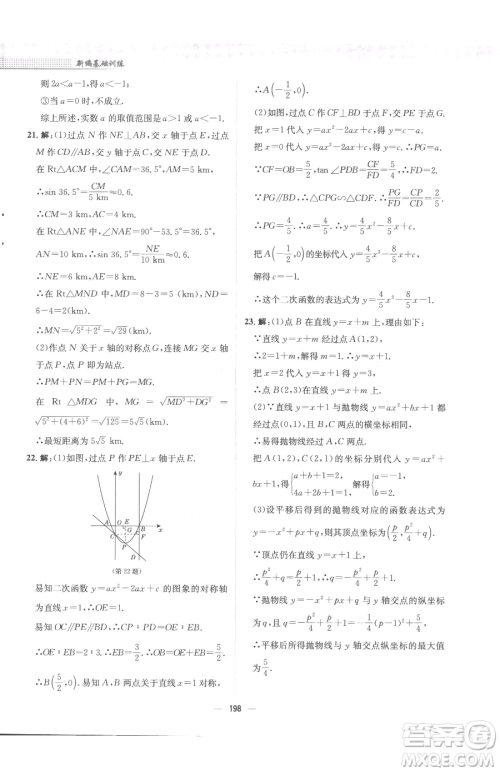 新编基础训练
则 2a<a−1,即 a<−1;
③当 a=0 时,不成立.
综上所述,实数 a 的取值范围是 a>1 或 a<−1.
21. 解:(1)过点 N 作 NE⊥AB,交 x 轴于点 E,过点
M 作 DM∥AB,交 NE 于点 D.
在 Rt△ACM 中,∠CAM=36.5°,MC=5 km,
∴sin 36.5°=CM/5 km≈0.6,
∴CM=3 km,AC=4 km.
在 Rt△ANE 中,
∵∠NAE=90°−53.5°=36.5°,
AN=10 km,∴sin 36.5°=NE/10 km≈0.6,
∴NE=6 km,∴AE=8 km.
在 Rt△MND 中,MD=5 km,ND=NE−DE=
6−4=2(km),
∴MN=√(5²+2²)=√29(km).
(2)作点 N 关于 x 轴的对称点 G,连接 MG,交 x
轴于点 P,点 P 即为站点.
∴PM+PN=PM+PG=MG.
在 Rt △MDG 中,MG=√(MD²+DG²)=
√(5²+(4+6)²)=√125=5√5(km).
∴最短距离为 5√5 km.
22. 解:(1)如图,过点 P 作 PE⊥x 轴于点 E.
y
A O E B x
C G F
P D
(第 22 题)
易知二次函数 y=ax²−2ax+c 的图象的对称轴
为直线 x=1,∴OE=1.
易知 OC∥PE∥BD,∴OE∶EB=CP∶PD.
∵CP∶PD=2∶3,∴OE∶EB=2∶3,∴EB=3/2.
∴B(5/2,0). 易知点 A,B 关于直线 x=1 对称,
∴A(−1/2,0).
(2)如图,过点 C 作 CF⊥BD 于点 F,交 PE 于点 G.
把 x=1 代入 y=ax²−2ax+c,得 y=c−a,
把 x=0 代入 y=ax²−2ax+c,得 y=c,
∴PG=a.
∵CF=OB=5/2,tan ∠PDB=CF/FD=5/4,∴FD=2.
∵PG∥BD,∴△CPG∽△CDF,∴PG/FD=CP/CD=2/5.
∴PG=4/5,∴a=4/5,∴y=4/5x²−8/5x+c.
把 A(−1/2,0)的坐标代入 y=4/5x²−8/5x+c,
解得 c=−1.
∴这个二次函数的表达式为 y=4/5x²−8/5x−1.
23. 解:(1)点 B 在直线 y=x+m 上.理由如下:
∵直线 y=x+m 经过点 A(1,2),
∴2=1+m,∴m=1,∴y=x+1.
把 x=2 代入 y=x+1,得 y=3,
∴点 B(2,3)在直线 y=x+m 上.
(2)∵直线 y=x+1 与抛物线 y=ax²+bx+1 都
经过点(0,1),且 B,C 两点的横坐标相同,
∴易知抛物线只能经过 A,C 两点.
把 A(1,2),C(2,1)的坐标分别代入 y=ax²+
bx+1,得{a+b+1=2, 4a+2b+1=1,解得{a=−1, b=2.
(3)设平移后所得抛物线对应的函数表达式为
y=−(x−p/2)²+q,∴顶点坐标为(p/2,q).
∵顶点仍在直线 y=x+1 上,
∴p/2+1=q.
∵抛物线 y=−(x−p/2)²+q 与 y 轴交点的纵坐
标为−p²/4+q,
∴−p²/4+q=−p²/4+p/2+1=−1/4(p−1)²+5/4.
∴平移后所得抛物线与 y 轴交点纵坐标的最大值
为5/4.
198